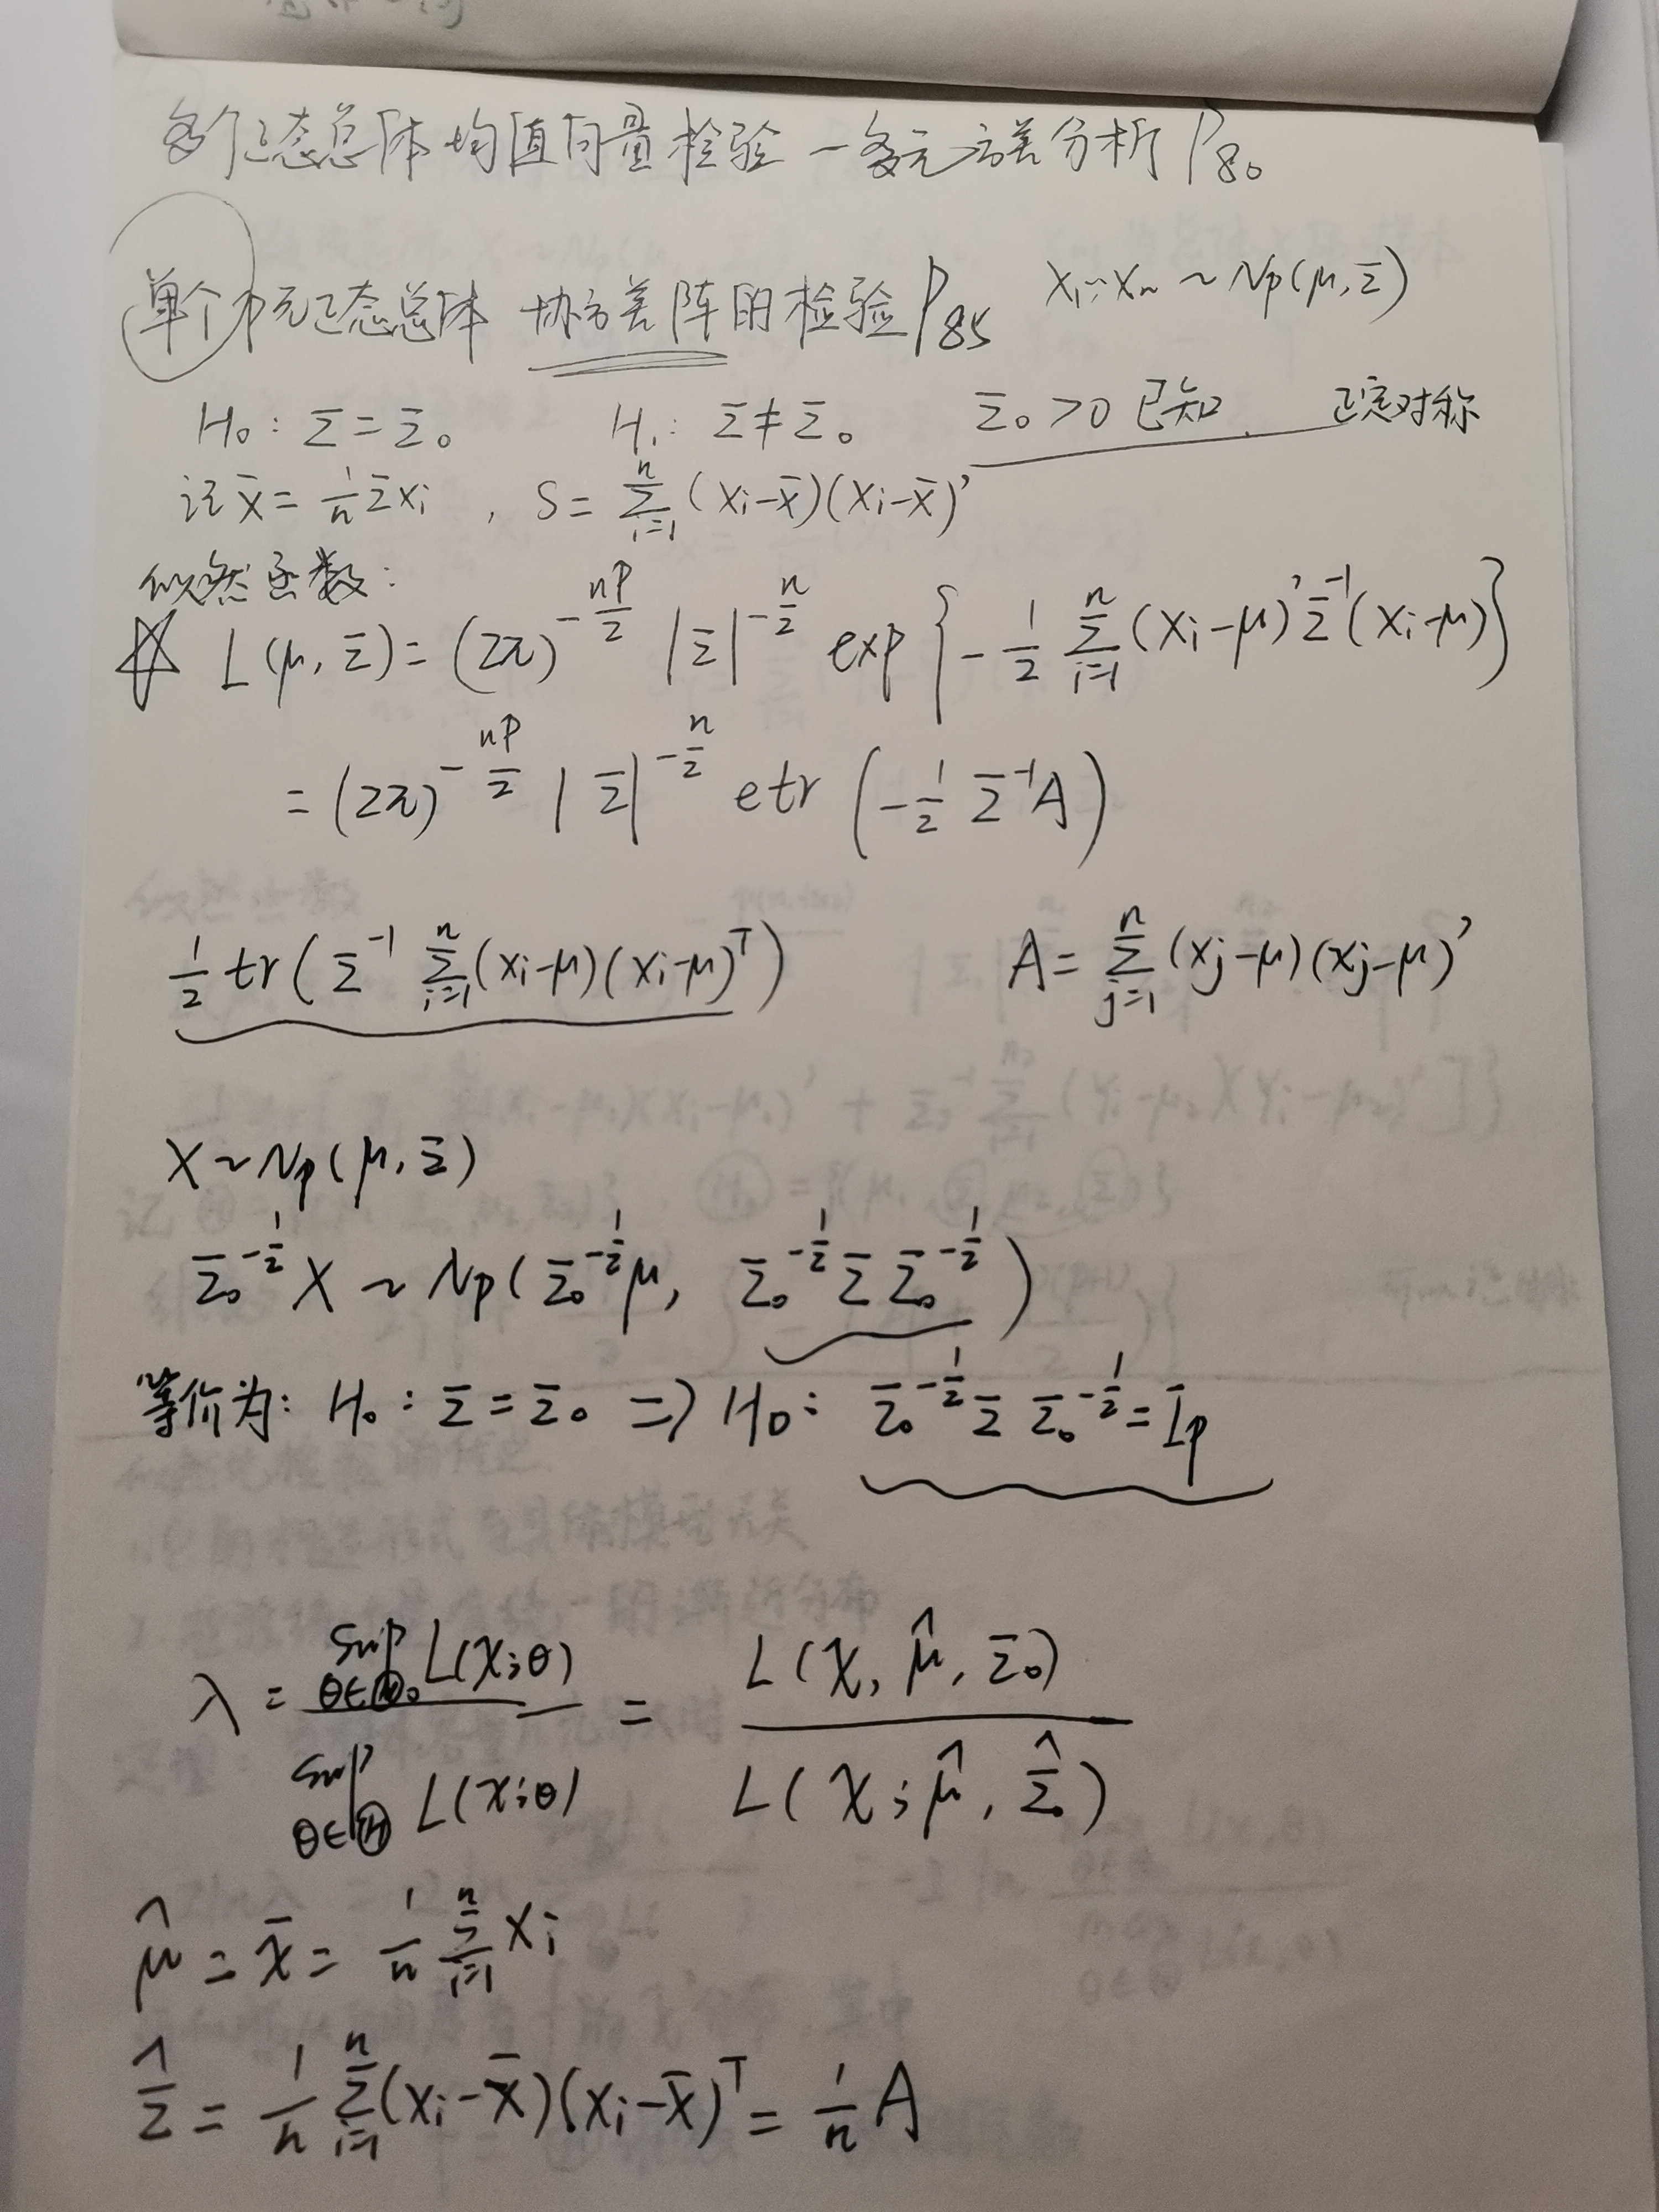 多个正态总体均值向量检验 — 多元方差分析 P80
单个p元正态总体 协方差阵的检验 P85 X₁…Xₙ ~ Np(μ, Σ)
H₀: Σ = Σ₀ H₁: Σ ≠ Σ₀ Σ₀ > 0 已知. 正定对称
记 x̄ = 1/n Σxᵢ , S = Σᵢ₌₁ⁿ (xᵢ-x̄)(xᵢ-x̄)'
似然函数:
☆ L(μ, Σ) = (2π)^(-np/2) |Σ|^(-n/2) exp{-1/2 Σᵢ₌₁ⁿ (xᵢ-μ)'Σ⁻¹(xᵢ-μ)}
= (2π)^(-np/2) |Σ|^(-n/2) etr(-1/2 Σ⁻¹A)
1/2 tr(Σ⁻¹ Σᵢ₌₁ⁿ (xᵢ-μ)(xᵢ-μ)ᵀ) A = Σⱼ₌₁ⁿ (xⱼ-μ)(xⱼ-μ)'
X ~ Np(μ, Σ)
Σ₀^(-1/2) X ~ Np(Σ₀^(-1/2) μ, Σ₀^(-1/2) Σ Σ₀^(-1/2))
等价为: H₀: Σ = Σ₀ ⇒ H₀: Σ₀^(-1/2) Σ Σ₀^(-1/2) = Ip
λ = sup_(θ∈Θ₀) L(x;θ) / sup_(θ∈Θ) L(x;θ) = L(x, μ̂, Σ₀) / L(x; μ̂, Σ̂₀)
μ̂ = x̄ = 1/n Σᵢ₌₁ⁿ xᵢ
Σ̂ = 1/n Σᵢ₌₁ⁿ (xᵢ-x̄)(xᵢ-x̄)ᵀ = 1/n A